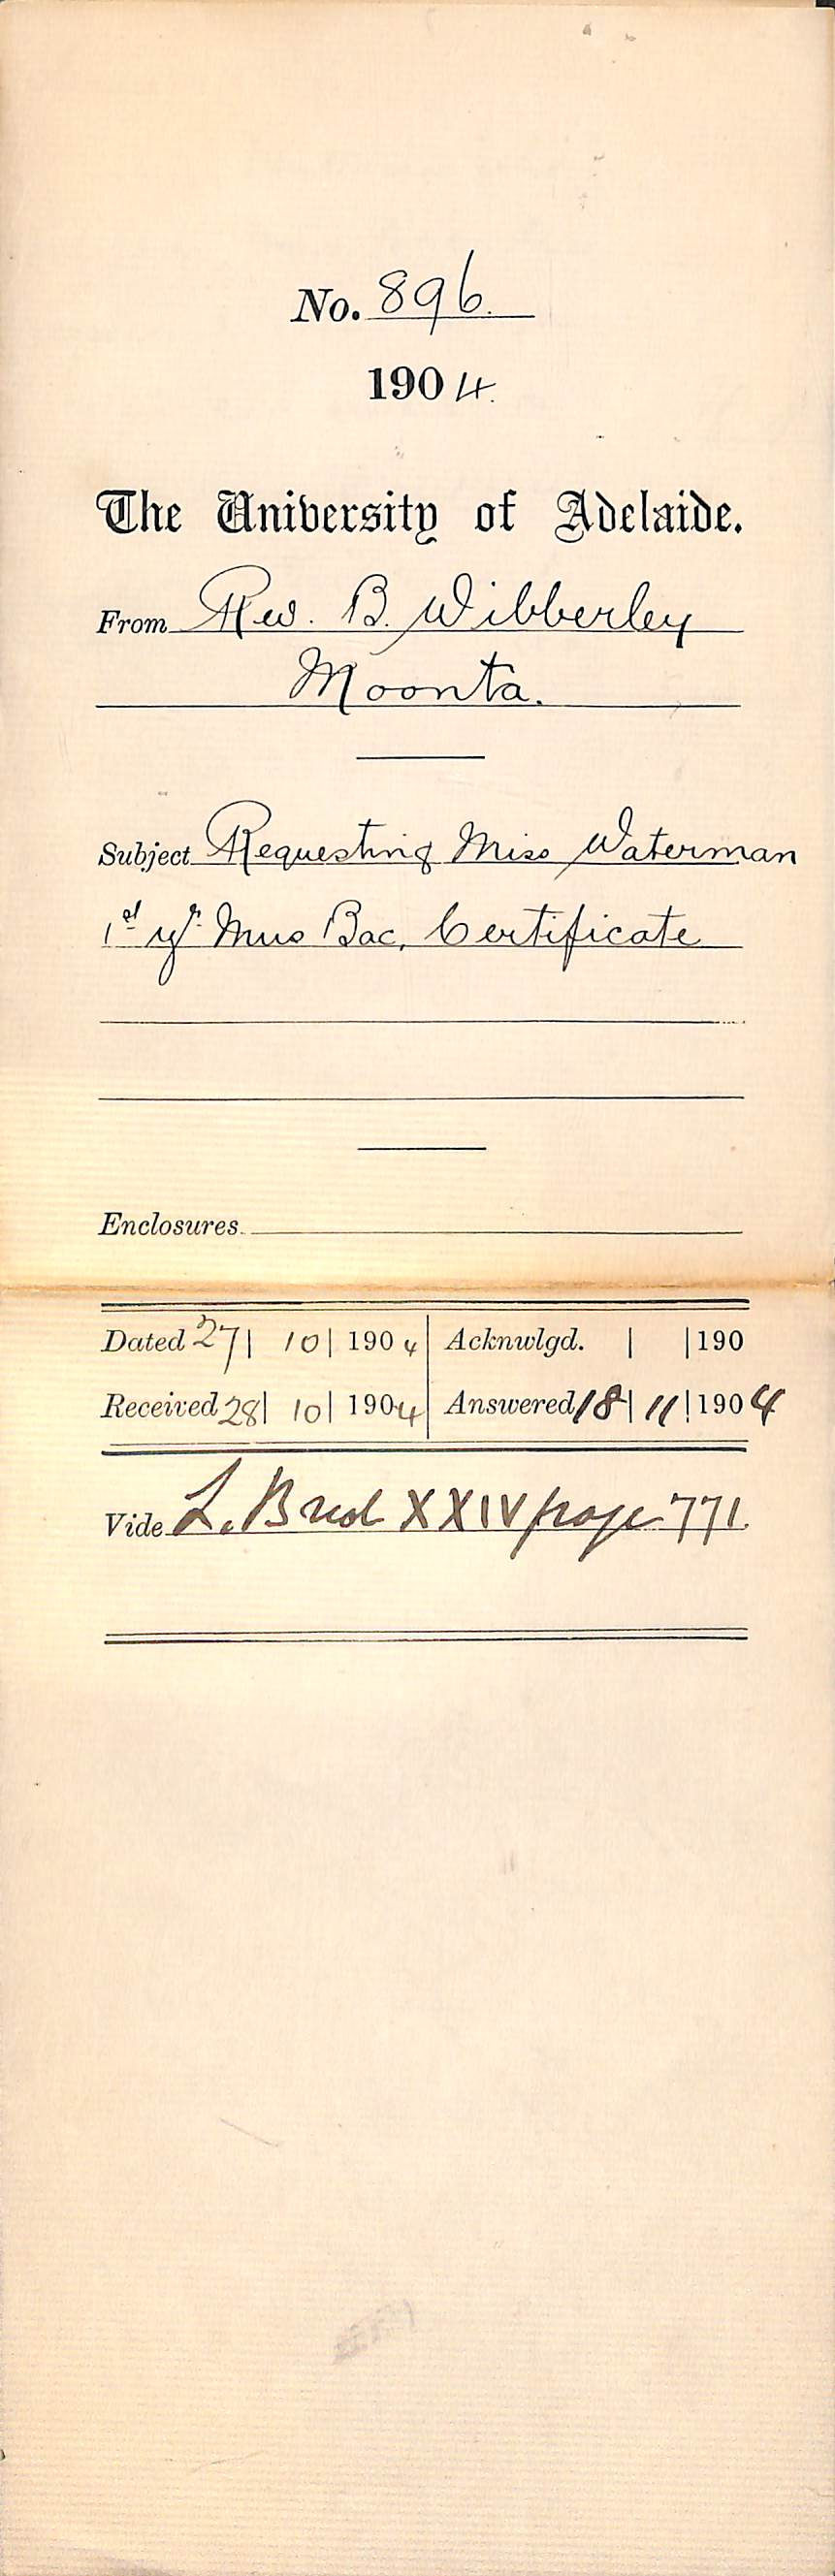 No. 896.
1904.
The University of Adelaide.
From Rev. B. Wibberley
Moonta.
Subject Requesting Miss Waterman
1st yr. Mus Bac. Certificate
Enclosures
Dated 27| 10| 1904 Acknwlgd. | |190
Received 28| 10| 1904 Answered 18| 11|1904
Vide L. B red XXIV page 771.